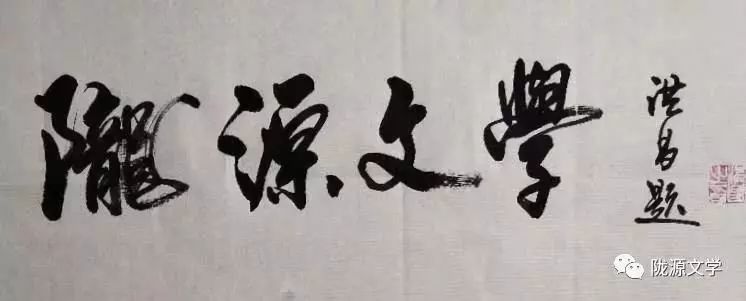 隴源文學
洪昌题
陇源文学